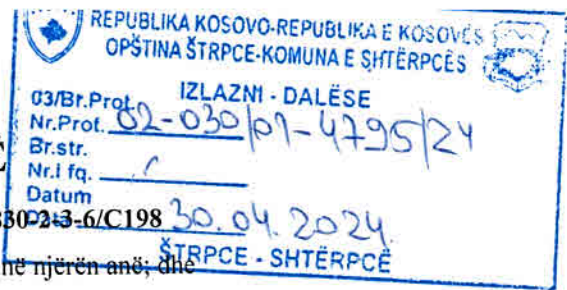 REPUBLIKA KOSOVO-REPUBLIKA E KOSOVËS
OPŠTINA ŠTRPCE-KOMUNA E SHTËRPCËS
IZLAZNI - DALËSE
03/Br.Prot.
Nr.Prot. 02-030/01-4795/24
Br.str.
Nr.i fq.
Datum
Data 30.04.2024.
-2-3-6/C198
ŠTRPCE - SHTËRPCË
në njërën anë; dhe